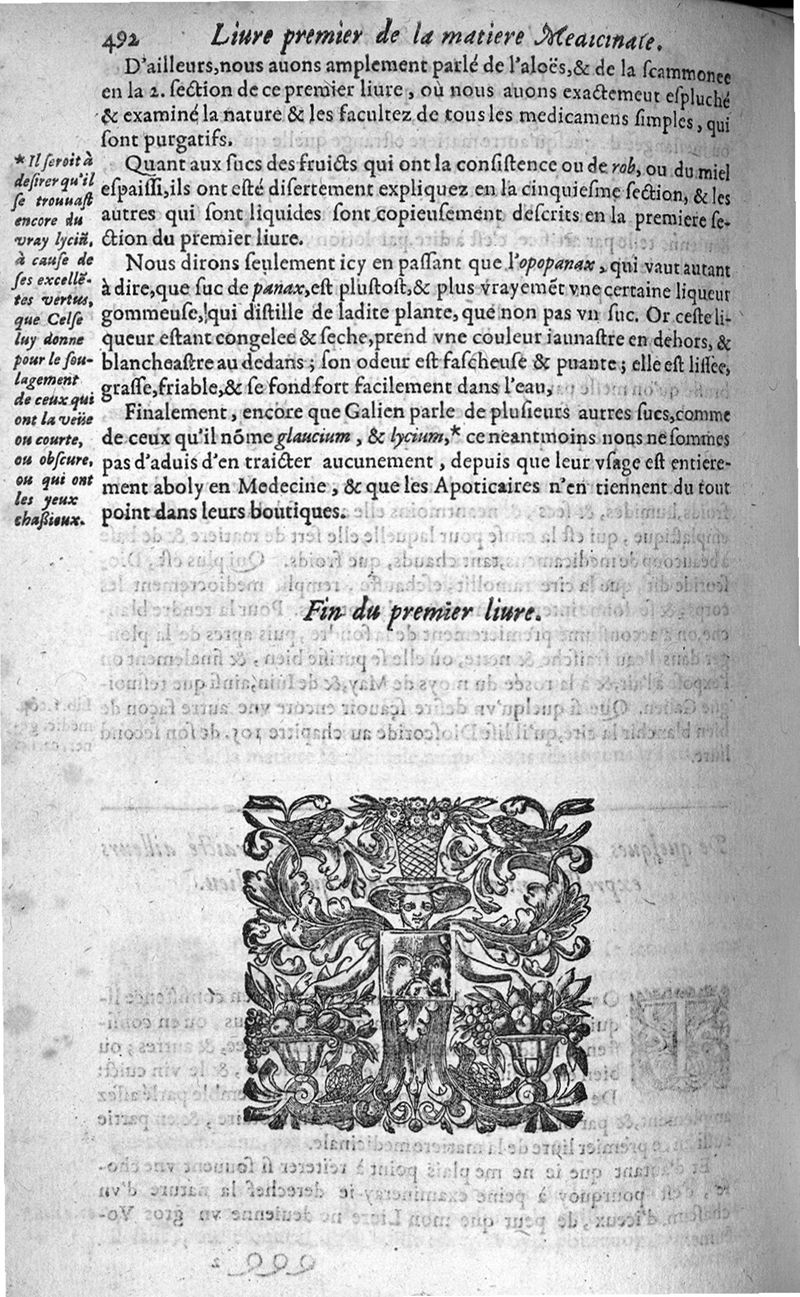 492 Liure premier de la matiere Medicinale.
D'ailleurs, nous auons amplement parlé de l'aloës, & de la scammonee
en la 2. section de ce premier liure, où nous auons exactemeut espluché
& examiné la nature & les facultez de tous les medicamens simples, qui
sont purgatifs.
Quant aux sucs des fruicts qui ont la consistence ou de rob, ou du miel
espaissi, ils ont esté disertement expliquez en la cinquiesme section, & les
autres qui sont liquides sont copieusement descrits en la premiere se-
ction du premier liure.
Nous dirons seulement icy en passant que l'opopanax, qui vaut autant
à dire, que suc de panax, est plustost, & plus vrayemēt vne certaine liqueur
gommeuse, qui distille de ladite plante, que non pas vn suc. Or ceste li-
queur estant congelee & seche, prend vne couleur iaunastre en dehors, &
blancheastre au dedans ; son odeur est fascheuse & puante ; elle est lissee,
grasse, friable, & se fond fort facilement dans l'eau,
Finalement, encore que Galien parle de plusieurs autres sucs, comme
de ceux qu'il nōme glaucium, & lycium,* ce neantmoins nous ne sommes
pas d'aduis d'en traicter aucunement, depuis que leur vsage est entiere-
ment aboly en Medecine, & que les Apoticaires n'en tiennent du tout
point dans leurs boutiques.
* Il seroit à
desirer qu'il
se trouuast
encore du
vray lyciū,
à cause de
ses excellē-
tes vertus,
que Celse
luy donne
pour le sou-
lagement
de ceux qui
ont la veüe
ou courte,
ou obscure,
ou qui ont
les yeux
chassieux.
Fin du premier liure.